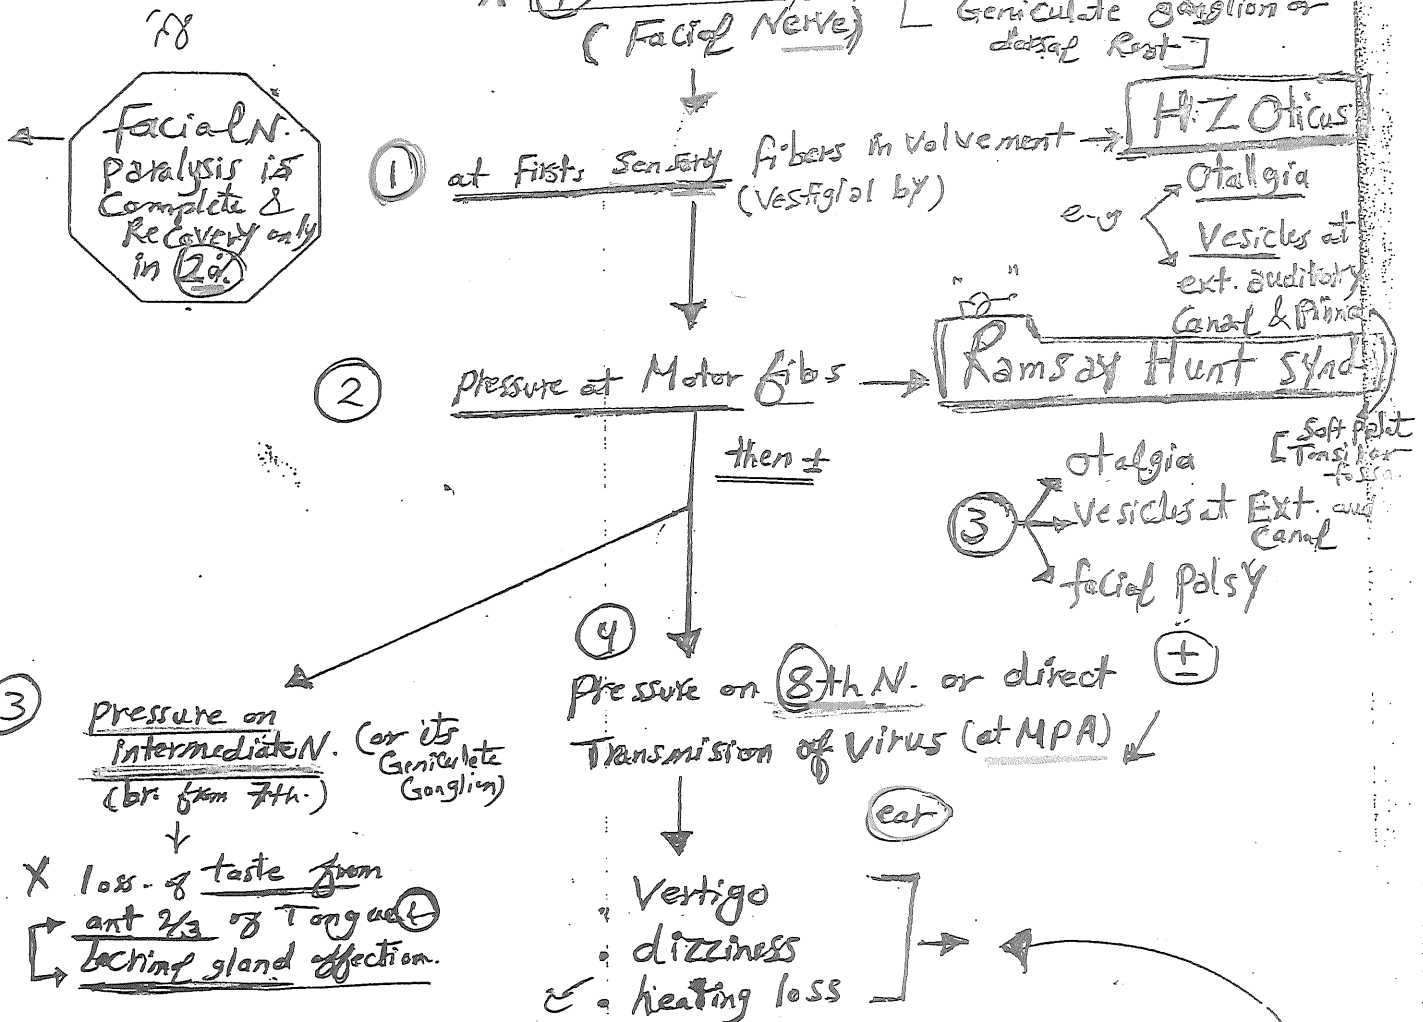 (Facial Nerve)
Geniculate ganglion or
dorsal Root]
Facial N.
paralysis is
Complete &
Recovery only
in 20%
1
at First, Sensory fibers involvement →
(Vestigial by)
HZ Oticus
Otallgia
e.g
Vesicles at
ext. auditory
Canal & Pinna
2
pressure at Motor fibs →
Ramsay Hunt synd
then ±
[Soft palat
Tonsilar
fossa
3
otalgia
Vesicles at Ext. aud
Canal
facial palsy
±
3
pressure on
intermediate N. (or its
Geniculete
Ganglion)
(br. from 7th.)
X loss. of taste from
ant 2/3 of Tongue
Lacrimal gland affection.
4
Pressure on 8th N. or direct
Transmision of Virus (at MPA)
ear
Vertigo
. dizziness
. hearing loss